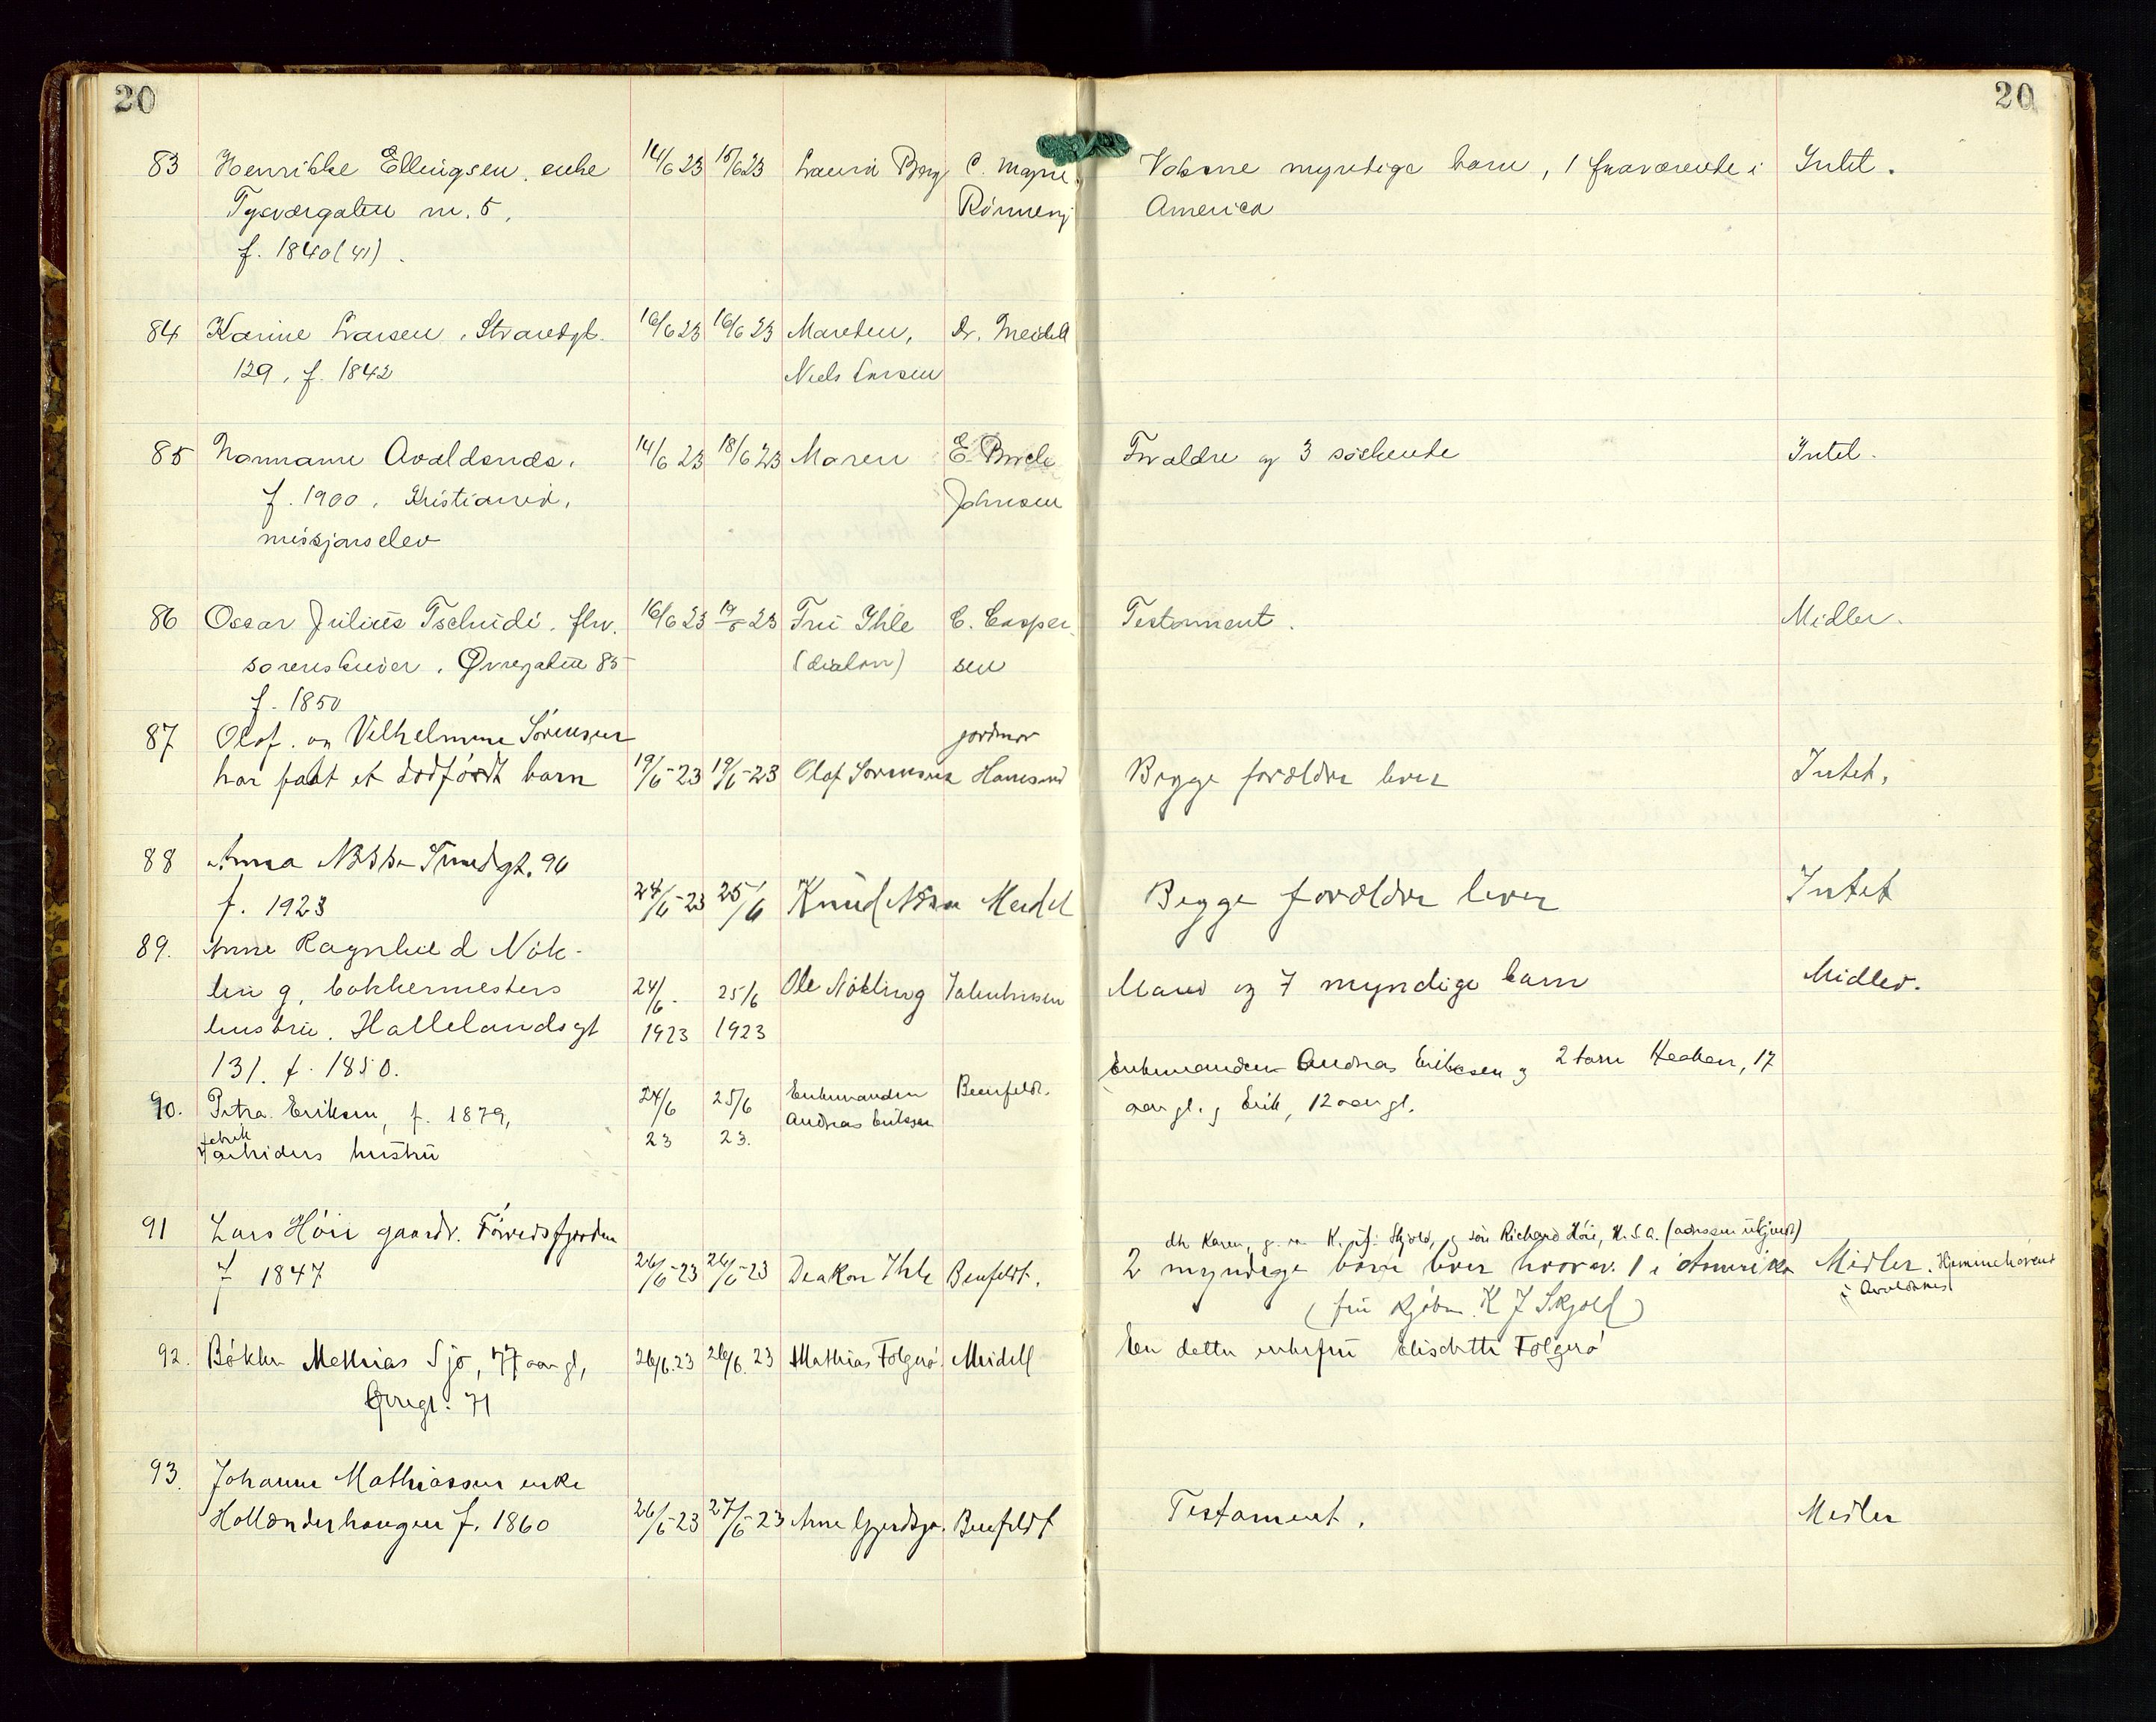 20
20
83 Henrikke Ellingsen, enke 14/6 23 15/6 23 Laura Berg C. Magne Voksne myndige barn, 1 fraværende i Intet.
Tysværgaten nr. 5, Rönnevig America
f. 1840(41).
84 Karine Larsen, Strandgt. 16/6 23 16/6 23 Manden, dr. Meidell
129, f. 1842 Niels Larsen
85 Avaldsnes, 14/6 23 18/6 23 Moren E. Forældre og 3 söskende Intet.
f. 1900, Kristiania, Johnsen
misjonselev
86 Oscar Julius Tschudi, fhv. 16/6 23 19/6 23 Fru Ihle C. Casper- Testament. Midler.
sorenskriver, Øvregaten 85 (diakon) sen
f. 1850
87 Olof og Vilhelmine Sörensen jordmor
har fåat et dödfödt barn 19/6-23 19/6-23 Olof Sörensen Begge forældre lever Intet.
88 Anna Strandgt. 96
f. 1923 24/6-23 25/6 Knud Meidell Begge forældre lever Intet
89. Anne Ragnhild Nök-
ling, bakkermesters 24/6- 25/6 Ole Nökling Mand og 7 myndige barn Midler.
hustru, Hallelandsgt 1923 1923
131. f. 1850.
90. Petra Eriksen, f. 1879, 24/6 25/6 Enkemanden Beenfeldt. Enkemanden Andreas Eriksen og 2 barn Haakon, 17
fabrik Andreas Eriksen aar gl. og Erik, 12 aar gl.
arbeiders hustru 23 23.
91 Lars Höie gaardbr. Förresfjorden dtr Karen, g. m. K. J. Skjold, og sön Richard Höie, U.S.A. (adressen ukjent)
f 1847 26/6-23 26/6-23 Deakon Ihle Benfeldt. 2 myndige barn lever hvorav 1 i Amerika Midler. Hjemmehörende
i Avaldsnes
(fru Kjöbm. K J Skjold)
92. Bökker Mathias Sjo, 77 aar gl, 26/6.23 26/6.23 Mathias Folgerö. Meidell En datter enkefru Elisabeth Folgerö
Øvregt. 71
93. Johanne Mathiassen enke
Hollenderhaugen f. 1860 26/6-23 27/6-23 Arne Benfeldt Testament. Midler